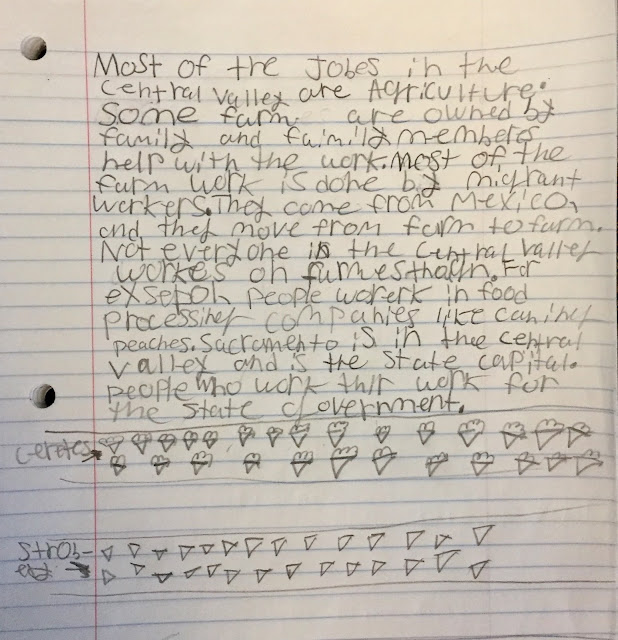 Most of the Jobes in the
Central Valley are Agriculture.
Some farm are owned by
family and faimily members
help with the work. Most of the
farm work is done by migrant
workers. They come from Mexico,
and they move from farm to farm.
Not everyone in the Central Valley
workes on farmes
For
people worerk in food
processiner companies like caniner
peaches. Sacramento is in the central
Valley and is the State capital.
people who work thir work for
the State Government.